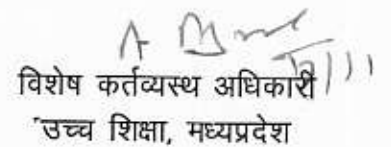 विशेष कर्तव्यस्थ अधिकारी
उच्च शिक्षा, मध्यप्रदेश